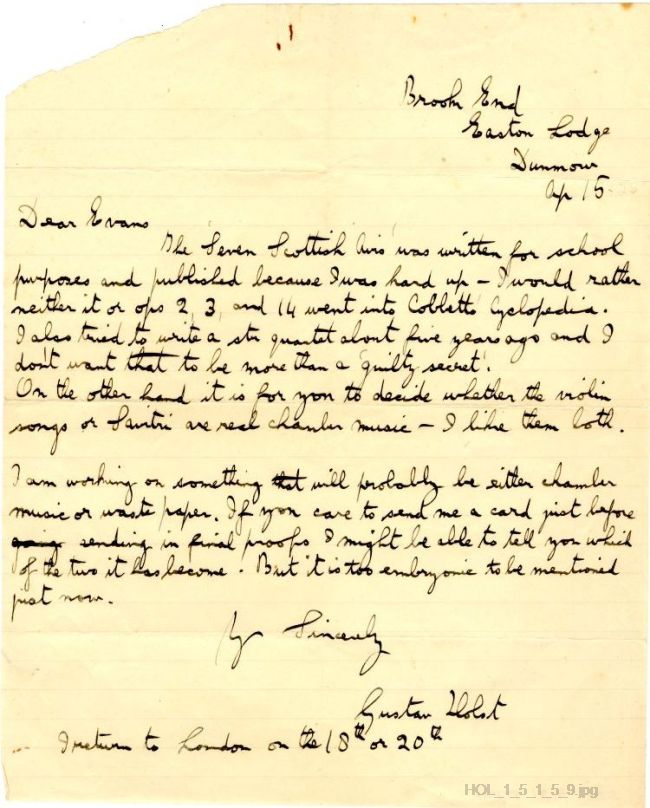 Brook End
Easton Lodge
Dunmow
Ap 15
Dear Evans
The 'Seven Scottish Airs' was written for school
purposes and published because I was hard up – I would rather
neither it or ops 2, 3, and 14 went into Cobbetts' Cyclopedia.
I also tried to write a str quartet about five years ago and I
don't want that to be more than a 'guilty secret'.
On the other hand it is for you to decide whether the violin
songs or Savitri are real chamber music – I like them both.
I am working on something that will probably be either chamber
music or waste paper. If you care to send me a card just before
going sending in final proofs I might be able to tell you which
of the two it has become. But it is too embryonic to be mentioned
just now.
Yr Sincerely
Gustav Holst
I return to London on the 18th or 20th
HOL_1_5_1_5_9.jpg